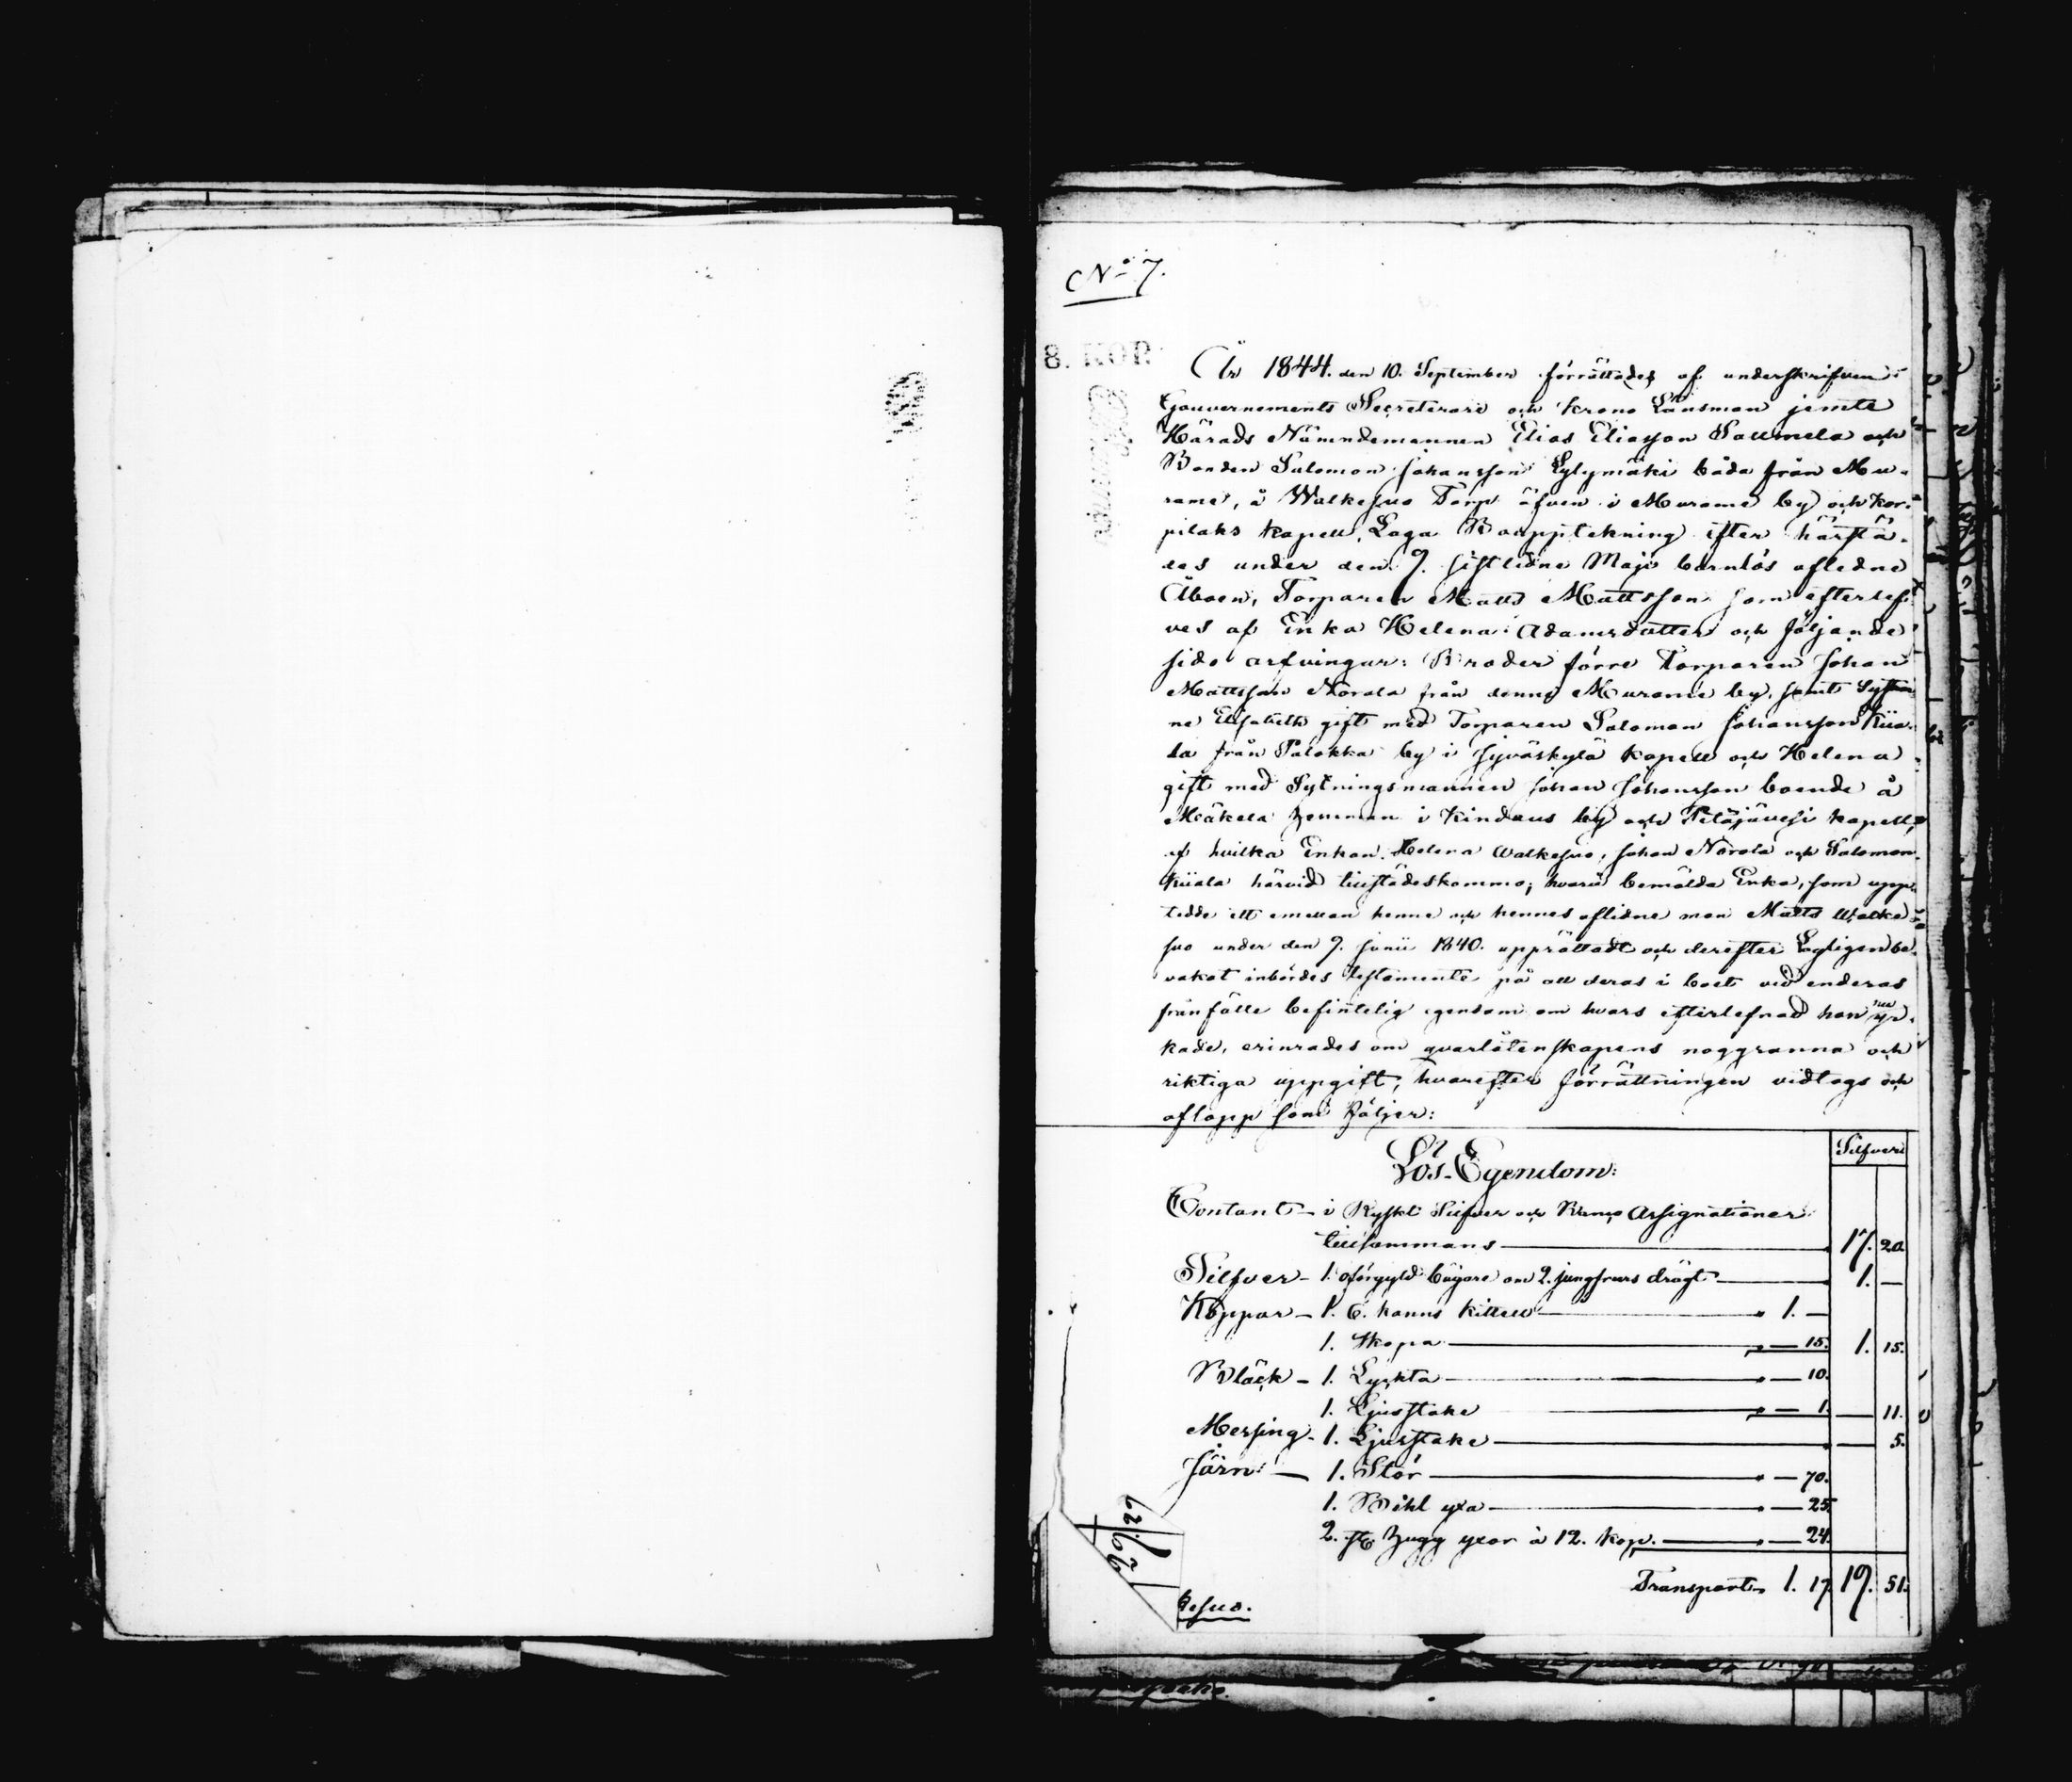 No 7.
8. KOP.
År 1844. den 10. September förrättades af underskrifven
Gouvernements Secreterare och Krono Länsman jemte
Härads Nämndemannen Elias Eliasson Saumela och
Bonden Salomon Johansson Lylymäki båda från Mu-
rame, å Walkesuo Torp äfven i Murame by och Kor-
pilaks Kapell, Laga Bouppteckning efter härstä-
des under den 9. sistledne Maji barnlös aflidne
Åboen, Torparen Matts Mattsson som efterlef-
ves af Enka Helena Adamsdotter och följande
sido arfvingar: Broder förre Torparen Johan
Mattsson Norola från denna Murame by, samt Systrar-
ne Elisabeth gift med Torparen Salomon Johansson Kiia-
la från Palokka by i Jyväskylä Kapell och Helena
gift med Sytningsmannen Johan Johansson boende å
Mäkelä hemman i Kindaus by och Petäjävesi Kapell,
af hvilka Enkan Helena Walkesuo, Johan Norola och Salomon
Kiiala härvid tillstädeskommo; hvarvid bemälda Enka, som upp-
tedde ett emellan henne och hennes aflidne man Matts Walke-
suo under den 9. Junii 1840. upprättadt och derefter Lagligen be-
vakat inbördes testamente på all deras i boet vid enderas
frånfälle befintelig egendom om hvars efterlefnad hon nu yr-
kade, erinrades om qvarlåtenskapens noggranna och
riktiga uppgift, hvarefter förrättningen vidtogs och
aflopp som följer:
Lös-Egendom: Silfver
Contant – i Ryskt Silfver och Banco Assignationer
tillsammans — 17. 20.
Silfver – 1. oförgyld bägare om 2. jungfrurs drägt — 1. —
Koppar – 1. 6. kanns Kittell — " 1. —
1. Skopa — " — 15. 1. 15.
Bläck – 1. Lyckta — " — 10.
1. Ljusstake " — 1. — 11.
Messing – 1. Ljusstake — — 5.
Järn – 1. Stör — " — 70.
1. Bihl yxa — " — 25.
2. st Hugg yxor à 12. kop. — " — 24.
Transport 1. 19. 19. 51.